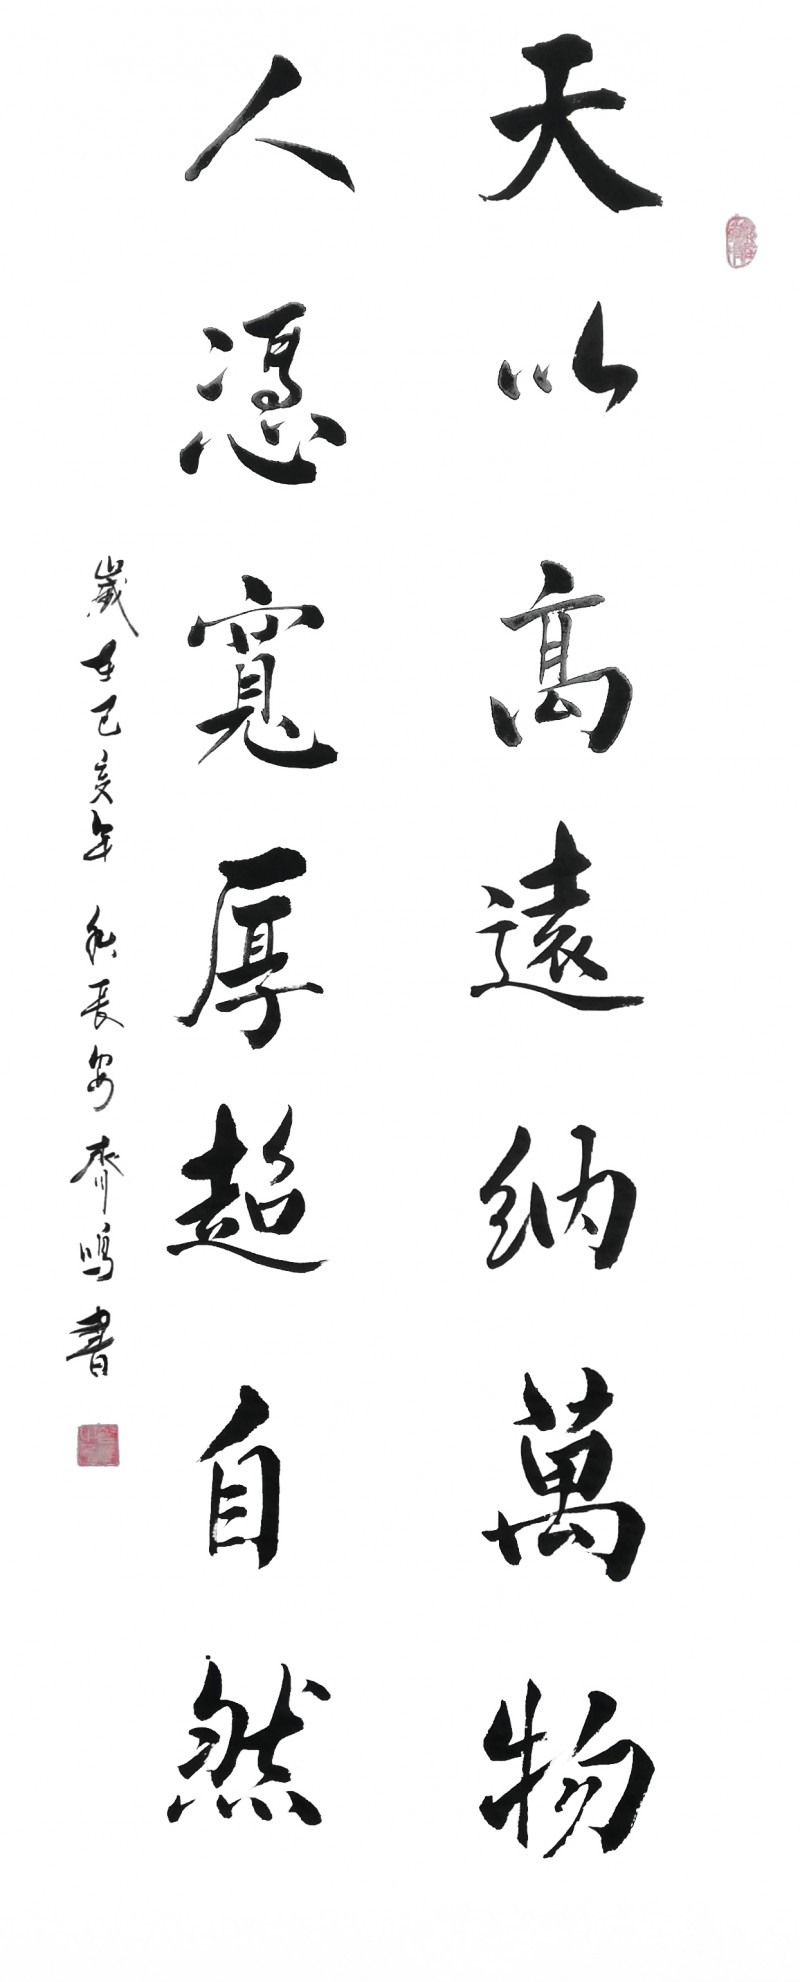 天以高遠納萬物
人憑寬厚超自然
歲在己亥年秋長安齊鳴書